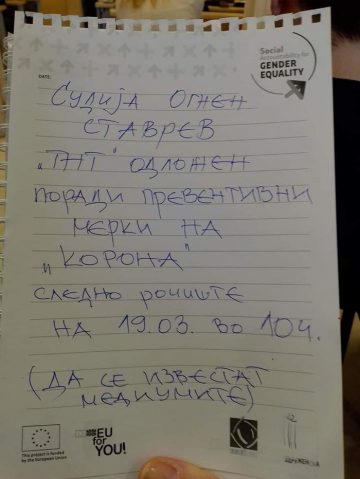 Social
Accountability for
GENDER
EQUALITY
DATE:
Судија Огнен
Ставрев
„ТНТ“ одложен
поради превентивни
мерки на
„Корона“
следно рочиште
на 19.03. во 10ч.
(да се известат
медиумите)
This project is funded
by the European Union
EU
for
YOU!